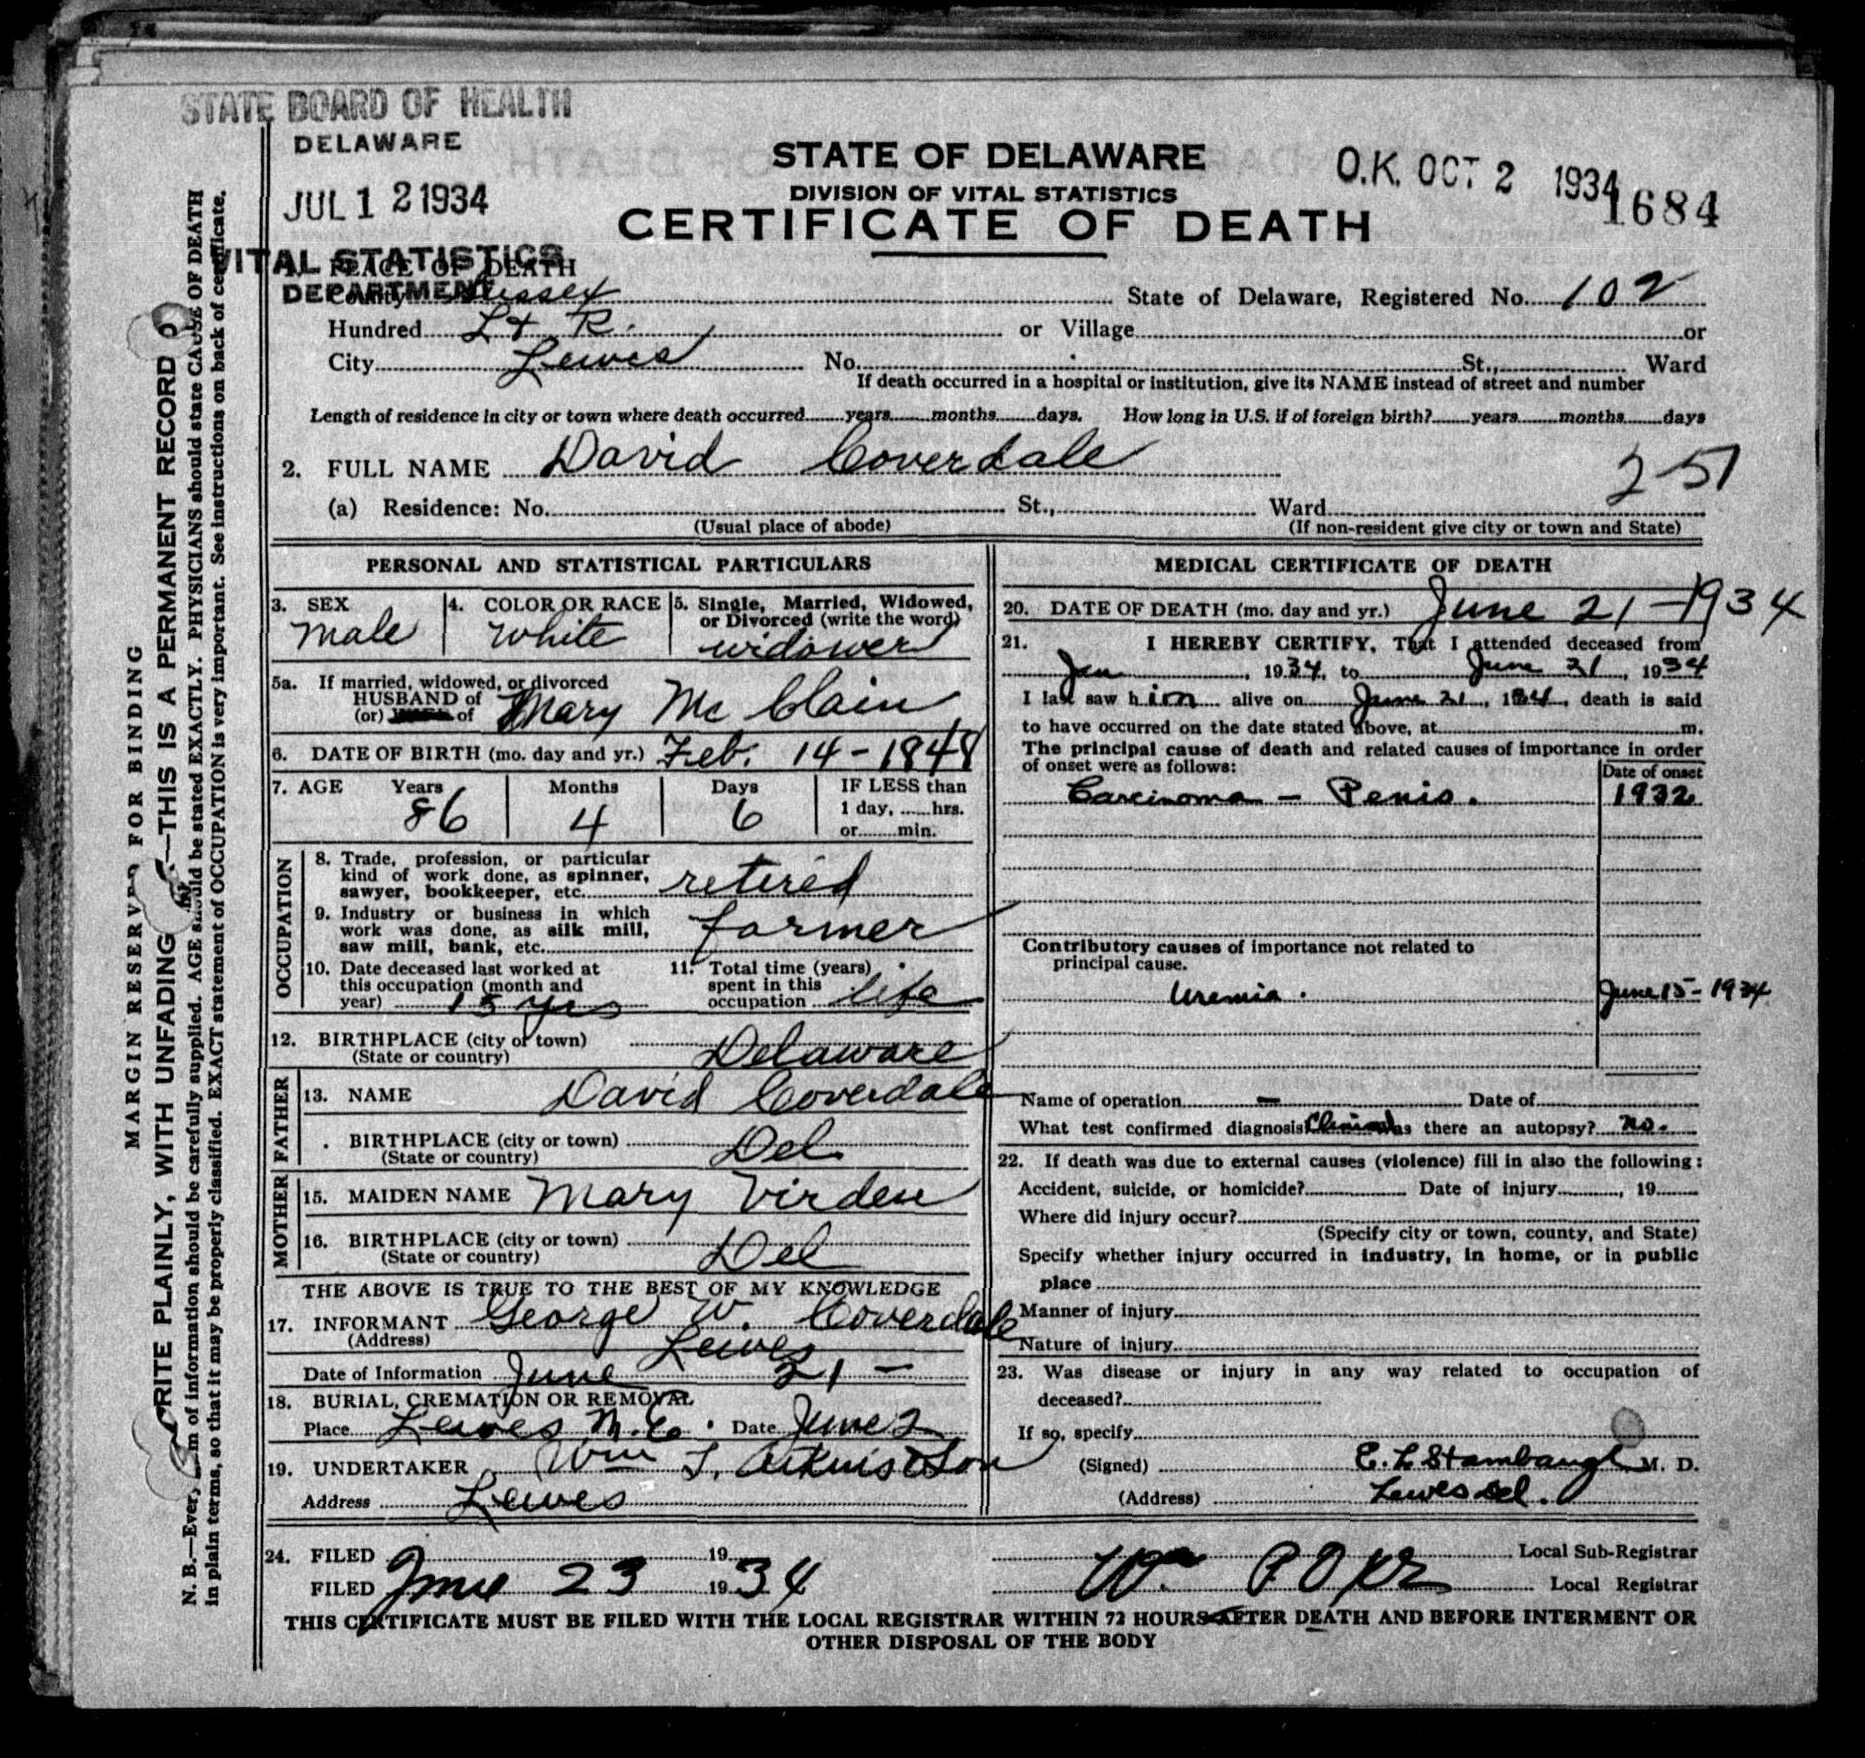 STATE BOARD OF HEALTH
DELAWARE
JUL 12 1934
VITAL STATISTICS
DEPARTMENT
STATE OF DELAWARE
DIVISION OF VITAL STATISTICS
CERTIFICATE OF DEATH
O.K. OCT 2 1934
1684
PLACE OF DEATH
County Sussex State of Delaware, Registered No. 102
Hundred L & R. or Village or
City Lewes No. St., Ward
If death occurred in a hospital or institution, give its NAME instead of street and number
Length of residence in city or town where death occurred years months days. How long in U.S. if of foreign birth? years months days
2. FULL NAME David Coverdale
251
(a) Residence: No. St., Ward
(Usual place of abode) (If non-resident give city or town and State)
PERSONAL AND STATISTICAL PARTICULARS
3. SEX
Male
4. COLOR OR RACE
White
5. Single, Married, Widowed,
or Divorced (write the word)
widower
5a. If married, widowed, or divorced
HUSBAND of
(or) of Mary Mc Clain
6. DATE OF BIRTH (mo. day and yr.) Feb. 14-1848
7. AGE Years Months Days IF LESS than
86 4 6 1 day, hrs.
or min.
OCCUPATION
8. Trade, profession, or particular
kind of work done, as spinner,
sawyer, bookkeeper, etc. retired
9. Industry or business in which
work was done, as silk mill,
saw mill, bank, etc. farmer
10. Date deceased last worked at
this occupation (month and
year) 15 yrs
11. Total time (years)
spent in this
occupation life
12. BIRTHPLACE (city or town)
(State or country) Delaware
FATHER
13. NAME David Coverdale
BIRTHPLACE (city or town)
(State or country) Del
MOTHER
15. MAIDEN NAME Mary Virden
16. BIRTHPLACE (city or town)
(State or country) Del
THE ABOVE IS TRUE TO THE BEST OF MY KNOWLEDGE
17. INFORMANT George W. Coverdale
(Address) Lewes
Date of Information June 21 -
18. BURIAL, CREMATION OR REMOVAL
Place Lewes M.E. Date June 2
19. UNDERTAKER Wm T. Atkins & Son
Address Lewes
MEDICAL CERTIFICATE OF DEATH
20. DATE OF DEATH (mo. day and yr.) June 21-1934
21. I HEREBY CERTIFY, That I attended deceased from
Jan, 1934, to June 21, 1934
I last saw him alive on June 21, 1934, death is said
to have occurred on the date stated above, at m.
The principal cause of death and related causes of importance in order
of onset were as follows:
Date of onset
Carcinoma - Penis. 1932
Contributory causes of importance not related to
principal cause.
Uremia. June 15-1934
Name of operation - Date of
What test confirmed diagnosis? Clinical Was there an autopsy? no.
22. If death was due to external causes (violence) fill in also the following:
Accident, suicide, or homicide? Date of injury, 19
Where did injury occur?
(Specify city or town, county, and State)
Specify whether injury occurred in industry, in home, or in public
place
Manner of injury
Nature of injury
23. Was disease or injury in any way related to occupation of
deceased?
If so, specify
(Signed) E. L Stambaugh M. D.
(Address) Lewes Del.
24. FILED 19 Local Sub-Registrar
FILED June 23 1934 Local Registrar
THIS CERTIFICATE MUST BE FILED WITH THE LOCAL REGISTRAR WITHIN 72 HOURS AFTER DEATH AND BEFORE INTERMENT OR
OTHER DISPOSAL OF THE BODY
MARGIN RESERVED FOR BINDING
RITE PLAINLY, WITH UNFADING —THIS IS A PERMANENT RECORD
N. B.—Every of information should be carefully supplied. AGE should be stated EXACTLY. PHYSICIANS should state CAUSE OF DEATH
in plain terms, so that it may be properly classified. EXACT statement of OCCUPATION is very important. See instructions on back of certificate.